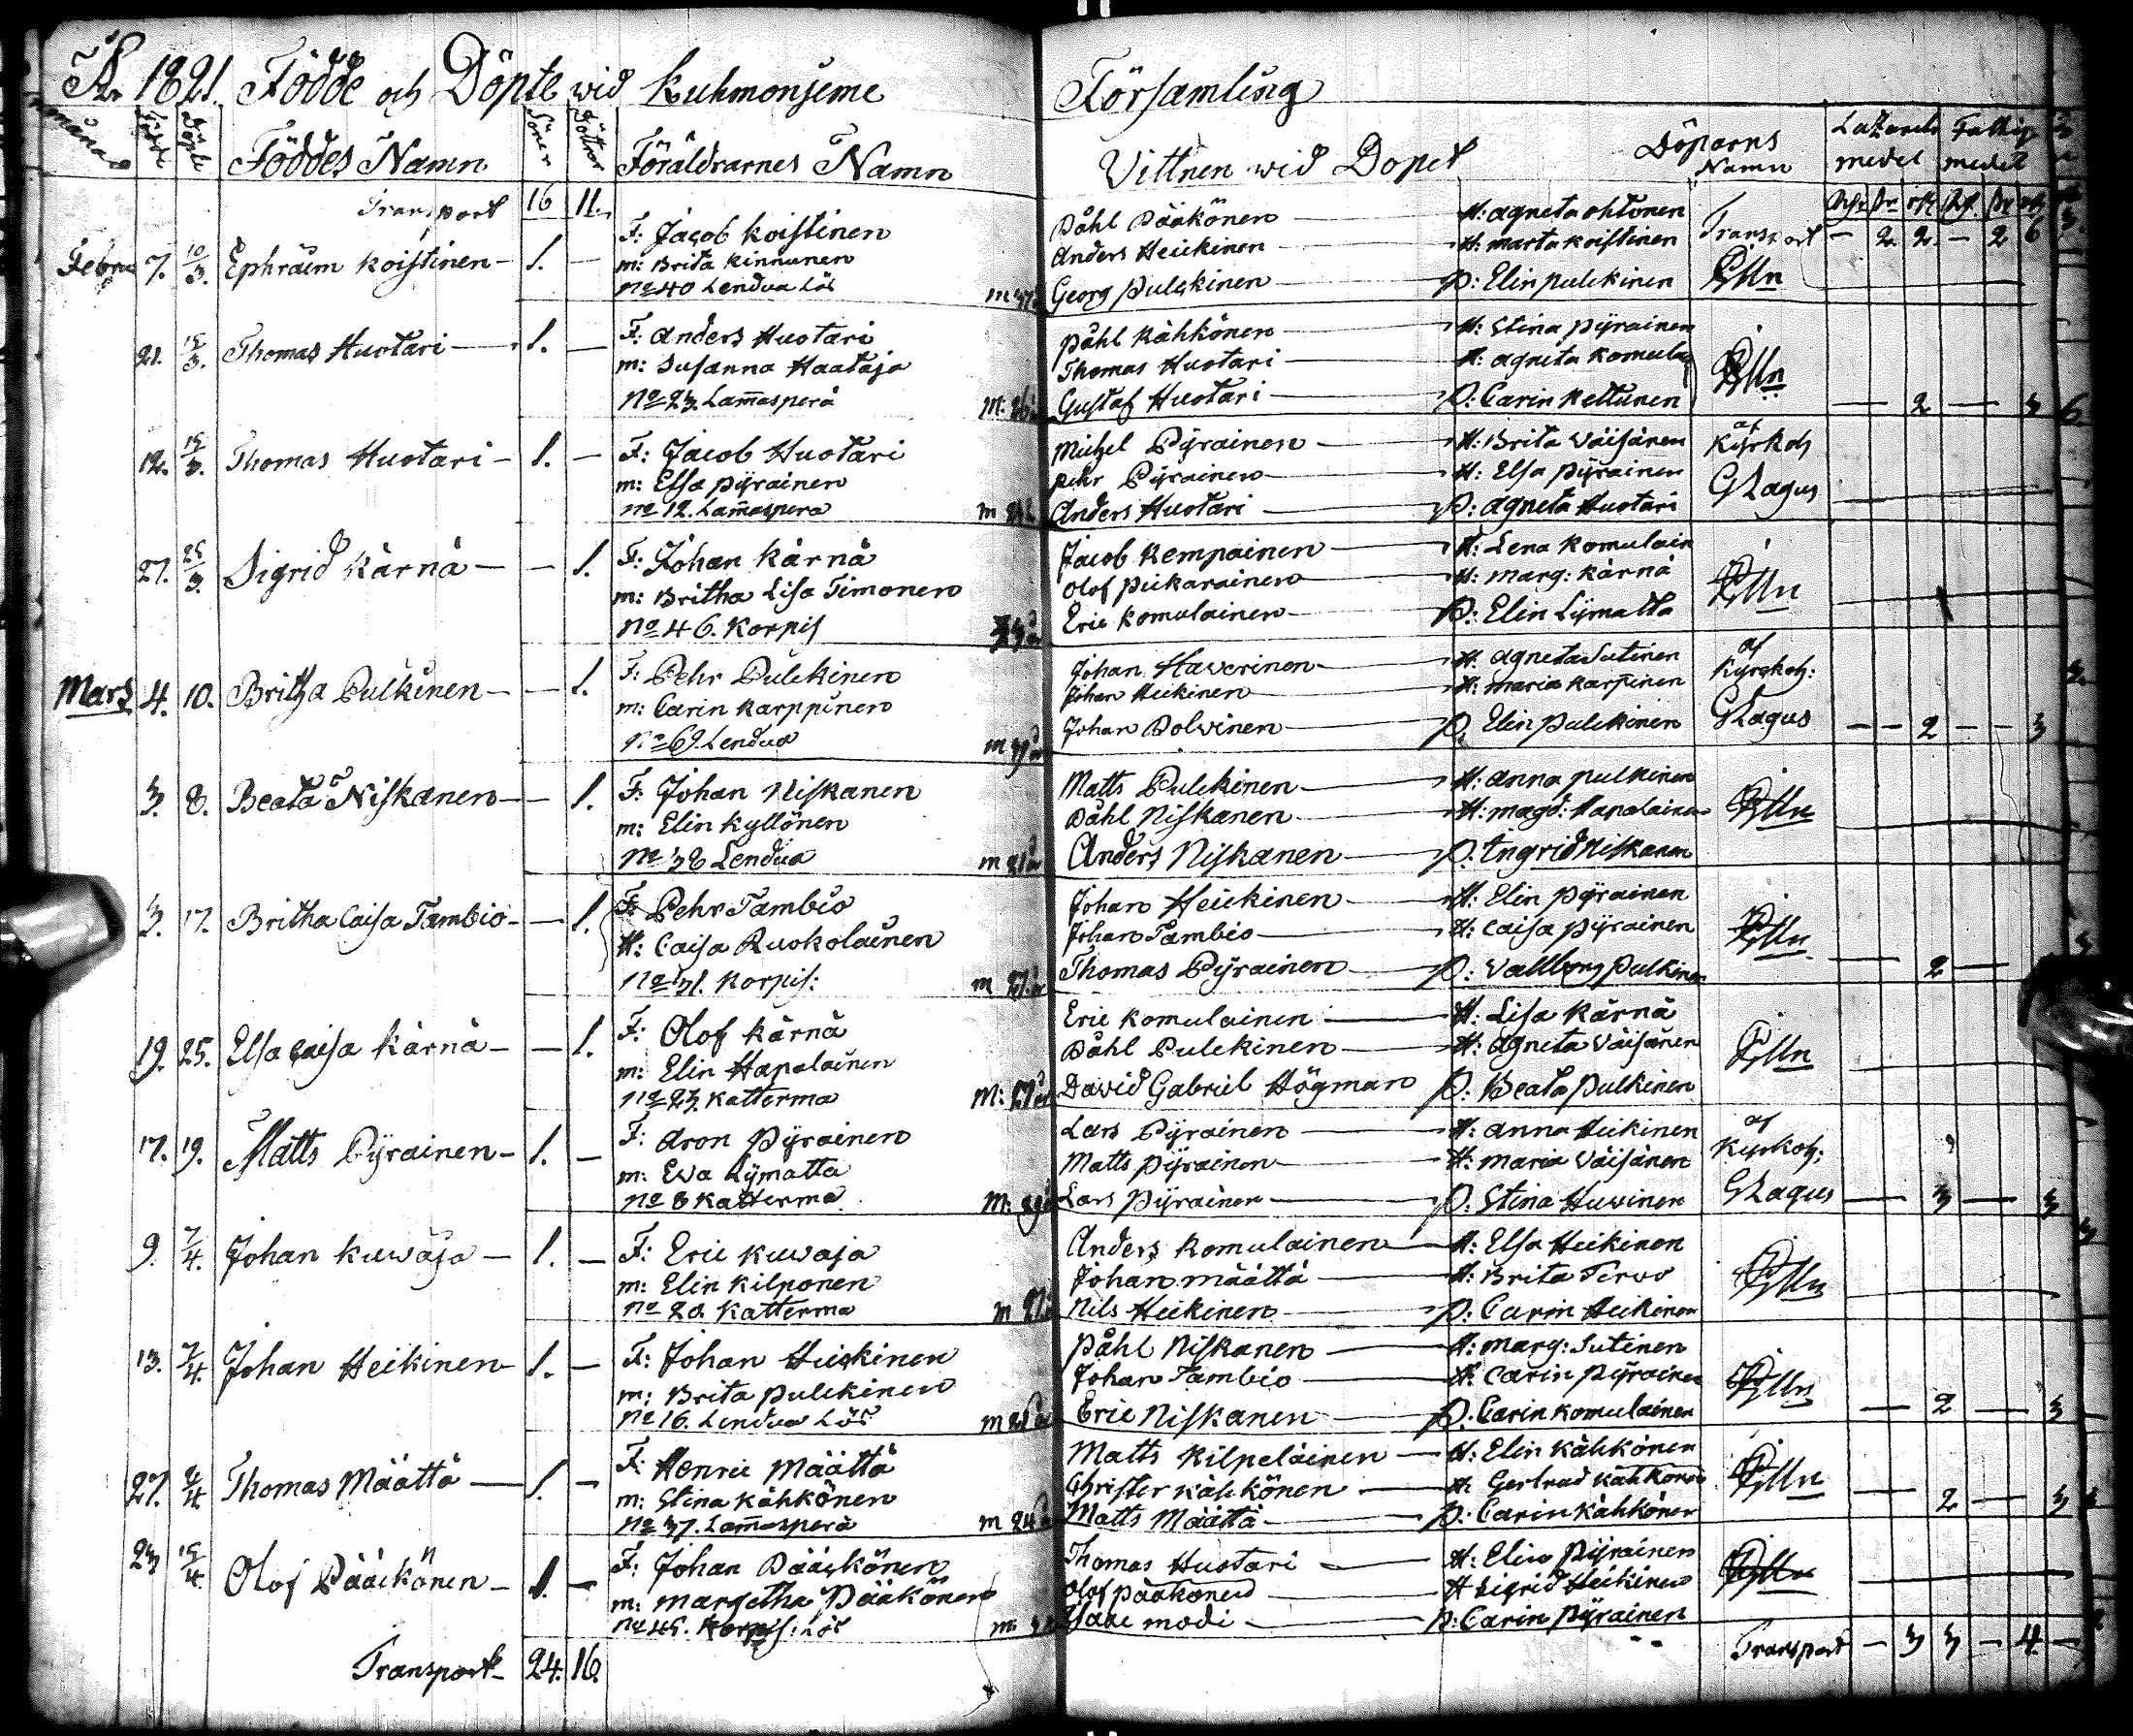 År 1821. Födde och Döpte wid Kuhmonjeme Församling
månad Född Döpte Föddes Namn Söner Döttrar Föräldrarnes Namn Vittnen wid Dopet Döparns Namn Lazaretts medel Fattig medel
Transport 16 11. Transport — 2. 2. — 2 6
Febru 7. 10/3. Ephraim Koistinen — 1. F: Jacob Koistinen Påhl Pääkönen — H: Agneta Ohtonen
m: Brita Kinnunen Anders Heickinen — H: Marta Koistinen
No 40 Lendua Lös Georg Pulckinen — P: Elin Pulckinen
21. 15/3. Thomas Huotari — 1. — F: Anders Huotari Påhl Kähkönen — H: Stina Pyrainen
m: Susanna Haataja Thomas Huotari — H: Agneta Komula
No 23. Lam̄asperä Gustaf Huotari — P: Carin Kettunen — 2 — 3
12. 15/3. Thomas Huotari — 1. — F: Jacob Huotari Michel Pyrainen — H: Brita Wäisänen af Kyrkoh
m: Elsa Pyrainen Pehr Pyrainen — H: Elsa Pyrainen GRagus
No 12. Lam̄aspera Anders Huotari — P: Agneta Huotari
27. 25/3. Sigrid Kärnä — — 1. F: Johan Kärnä Jacob Kempainen — H: Lena Komulain
m: Britha Lisa Timonen Olof Piikarainen — H: Marg: Kärnä
No 46. Korpis Eric Komulainen — P: Elin Lymatta
Mars 4. 10. Britha Pulkinen — — 1. F: Pehr Pulckinen Johan Haverinen — H: Agneta Sutinen af Kyrckoh:
m: Carin Karppinen Johan Heikinen — H: Maria Karpinen
No 69 Lendua Johan Polvinen — P. Elin Pulckinen GRagus — — 2 — — 3
3. 8. Beata Niskanen — — 1. F: Johan Niskanen Matts Pulckinen — H: Anna Pulkinen
m: Elin Kyllönen Påhl Niskanen — H: Magd: Hapalainen
No 38 Lendua Anders Niskanen — P. Ingrid Niskanen
3. 17. Britha Caisa Tambio — — 1. F: Pehr Tambio Johan Heickinen — H: Elin Pyrainen
H: Caisa Ruokolainen Johan Tambio — H: Caisa Pyrainen
No 31. Korpis: Thomas Pyrainen — P: Wallborg Pulkinen — 2 —
19. 25. Elsa Caisa Kärnä — — 1. F: Olof Kärnä Eric Komulainen — H: Lisa Kärnä
m: Elin Hapalainen Påhl Pulckinen — H: Agneta Wäisänen
No 23 Katterma David Gabriel Högman P: Beata Pulkinen
17. 19. Matts Pyrainen — 1. — F: Aron Pyrainen Lars Pyrainen — H: Anna Heikinen af Kyrkoh:
m: Ewa Lymatta Matts Pyrainen — H: Maria Wäisänen
No 8 Katterma Lars Pyrainen — P: Stina Huvinen GRagus — 3 — 3
9. 7/4. Johan Kuwaja — 1. — F: Eric Kuwaja Anders Komulainen — H: Elsa Heikinen
m: Elin Kilponen Johan Määttä — H: Brita Tervo
No 20. Katterma Nils Heikinen — P: Carin Heikinen
13. 7/4. Johan Heikinen — 1. — F: Johan Heickinen Påhl Niskanen — H: Marg: Sutinen
m: Brita Pulckinen Johan Tambio — H: Carin Pyrainen
No 16. Lendua Lös Eric Niskanen — P: Carin Komulainen — 2 — 3
27. Thomas Määttä — 1. — F: Henric Määttä Matts Kilpeläinen — H: Elin Kähkönen
m: Stina Kähkönen Christer Kähkönen — H: Gertrud Kähkönen
No 37. Lam̄asperä Matts Määttä — P: Carin Kähkönen — 2 — 3
23 15/4. Olof Pääckönen — 1. — F: Johan Pääckönen Thomas Huotari — H: Elin Pyrainen
m: Margetha Pääkönen Olof Pääkönen — H Sigrid Heikinen
No 45. Korpis: Lös Isaac Modi — P: Carin Pyrainen
Transport 24. 16. Transport — 3 3 — 4 —